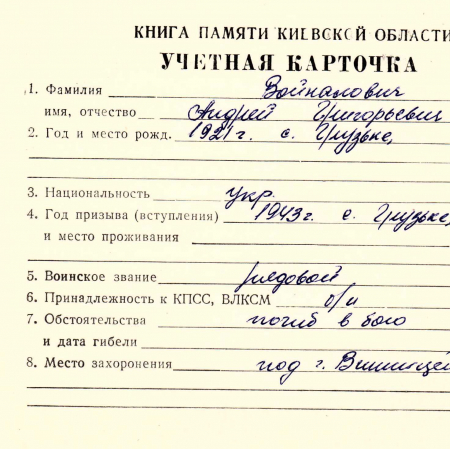 КНИГА ПАМЯТИ КИЕВСКОЙ ОБЛАСТИ
УЧЕТНАЯ КАРТОЧКА
1. Фамилия Войналович
имя, отчество Андрей Григорьевич
2. Год и место рожд. 1921 г. с. Грузьке,
3. Национальность укр.
4. Год призыва (вступления) 1943 г. с. Грузьке,
и место проживания
5. Воинское звание рядовой
6. Принадлежность к КПСС, ВЛКСМ б/п
7. Обстоятельства погиб в бою
и дата гибели
8. Место захоронения под г. Винницей